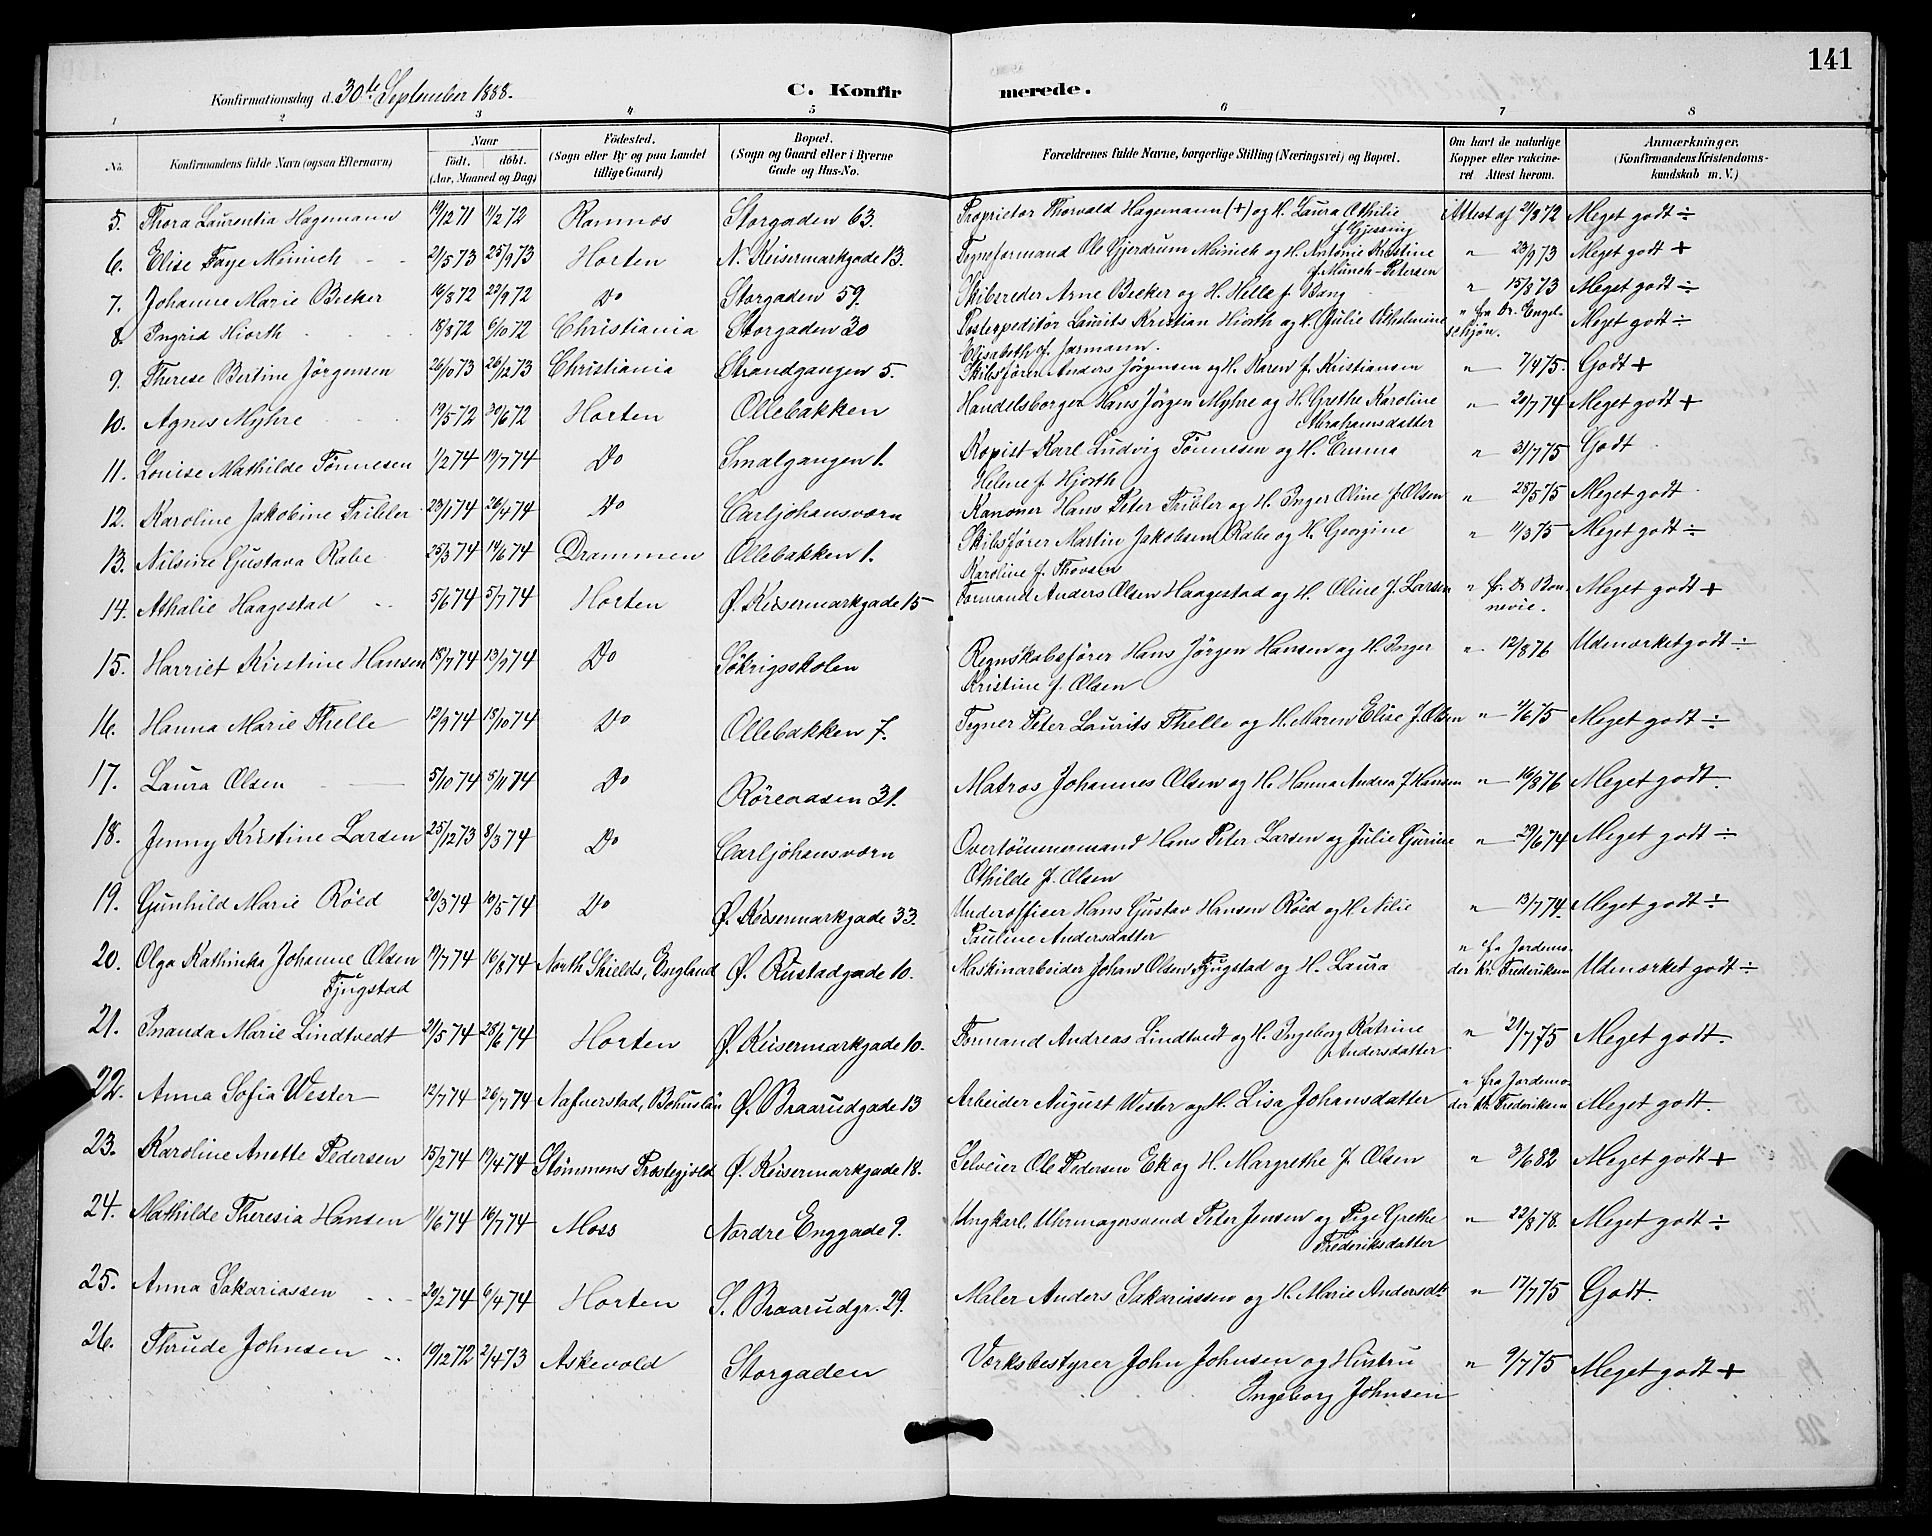 141
Konfirmationsdag d. 30te September 1888. C. Konfirmerede.
1 2 3 4 5 6 7 8
No. Konfirmandens fulde Navn (ogsaa Efternavn) Naar födt. döbt. (Aar, Maaned og Dag) Födested. (Sogn eller By og paa Landet tillige Gaard) Bopæl. (Sogn og Gaard eller i Byerne Gade og Hus-No. Forældrenes fulde Navne, borgerlige Stilling (Næringsvei) og Bopæl. Om havt de naturlige Kopper eller vakcineret Attest herom. Anmærkninger. (Konfirmandens Kristendomskundskab m. V.)
5. Thora Laurentia Hagemann 19/12 71 11/2 72 Ramnæs Storgaden 63. Proprietør Thorvald Hagemann (+) og H. Laura Othilie f. Gjessing Attest af 2/8 72 Meget godt ÷
6. Elise Faye Meinich 21/5 73 25/9 73 Horten N. Keisermarkgade 13. Tegneformand Ole Gjerdrum Meinich og H. Antonie Kristine f. Münch-Petersen " 23/9 73 Meget godt +
7. Johanne Marie Becker 16/8 72 22/9 72 Do Storgaden 59. Skibsreder Arne Becker og H. Helle f. Bang " 15/8 73 Meget godt ÷
8. Ingrid Hiorth 18/8 72 6/10 72 Christiania Storgaden 30 Postexpeditör Laurits Kristian Hiorth og H. Julie Vilhelmine Elisabeth f. Jarmann. " fra Dr. Engelschjøn. Meget godt ÷
9. Therese Bertine Jörgensen 26/10 73 26/12 73 Christiania Strandgangen 5. Skibsfören Anders Jörgensen og H. Karen f. Kristiansen " 7/4 75. Godt +
10. Agnes Myhre 19/5 72 30/6 72 Horten Ollebakken Handelsborger Hans Jörgen Myhre og H. Grethe Karoline Abrahamsdatter " 20/7 74 Meget godt +
11. Louise Mathilde Tönnesen 1/2 74 19/7 74 Do Smalgangen 1. Kopist Karl Ludvig Tönnesen og H. Emma Helene f. Hjorth " 31/7 75 Godt
12. Karoline Jakobine Tribler 23/1 74 26/4 74 Do Carljohansværn Kanoner Hans Peter Tribler og H. Inger Oline f. Olsen " 28/5 75 Meget godt
13. Nilsine Gustava Rabe 25/3 74 14/6 74 Drammen Ollebakken 1. Skibsfører Martin Jakobsen Rabe og H. Georgine Karoline f. Thovsen " 11/3 75 Meget godt ÷
14. Athalie Haagestad 5/6 74 5/7 74 Horten Ø. Keisermarkgade 15 Formand Anders Olsen Haagestad og H. Oline f. Larsen " fr. Dr Bonnevie. Meget godt +
15. Harriet Kristine Hansen 18/7 74 13/9 74 Do Søkrigsskolen Regnskabsfører Hans Jörgen Hansen og H. Inger Kristine f. Olsen " 12/8 76 Udmærket godt ÷
16. Hanna Marie Thelle 12/9 74 18/10 74 Do Ollebakken 7. Tegner Peter Laurits Thelle og H. Maren Elise f. Olsen " 11/6 75 Meget godt ÷
17. Laura Olsen 5/10 74 5/11 74 Do Röreaasen 31. Matros Johannes Olsen og H. Hanna Andrea f. Hansen " 16/8 76 Meget godt.
18. Jenny Kristine Larsen 25/12 73 8/3 74 Do Carljohansværn Overtömmermand Hans Peter Larsen og Julie Gurine Othilde f. Olsen " 29/6 74 Meget godt ÷
19. Gunhild Marie Röed 20/3 74 10/5 74 Do Ø. Keisermarkgade 33. Underofficer Hans Gustav Hansen Röed og H. Nilie Pauline Andersdatter " 13/7 74. Meget godt ÷
20. Olga Kathinka Johanne Olsen Fjugstad 19/7 74 16/8 74 North Shields, England Ø. Rustadgade 10. Maskinarbeider Johan Olsen Fjugstad og H. Laura " fra Jordemoder Kr. Frederiksen Udmærket godt ÷
21. Inanda Marie Lindtvedt 21/5 74 28/6 74 Horten Ø. Keisermarkgade 10. Formand Andreas Lindtvedt og H. Ingeborg Katrine Andersdatter " 21/7 75 Meget godt.
22. Anna Sofia Wester 12/7 74 26/7 74 Nafverstad, Bohuslän Ø. Braarudgade 13 Arbeider August Wester og H. Lisa Johansdatter " fra Jordemoder Kr. Frederiksen Meget godt.
23. Karoline Anette Pedersen 15/2 74 19/4 74 Strømmens Præstegjeld Ø. Keisermarkgade 18. Selveier Ole Pedersen Ek og H. Margrethe f. Olsen " 3/6 82 Meget godt +
24. Mathilde Theresia Hansen 11/6 74 16/7 74 Moss Nordre Enggade 9. Ungkarl, Uhrmagersvend Peter Jensen og Pige Grethe Frederiksdatter " 22/8 78. Meget godt ÷
25. Anna Sakariassen 20/2 74 6/4 74 Horten S. Braarudgr. 29. Maler Anders Sakariassen og H. Marie Andersdt. " 17/7 75 Godt.
26. Thrude Johnsen 19/12 72 2/4 73 Askevold Storgaden Værksbestyrer John Johnsen og Hustru Ingeborg Johnsen " 9/7 75 Meget godt +